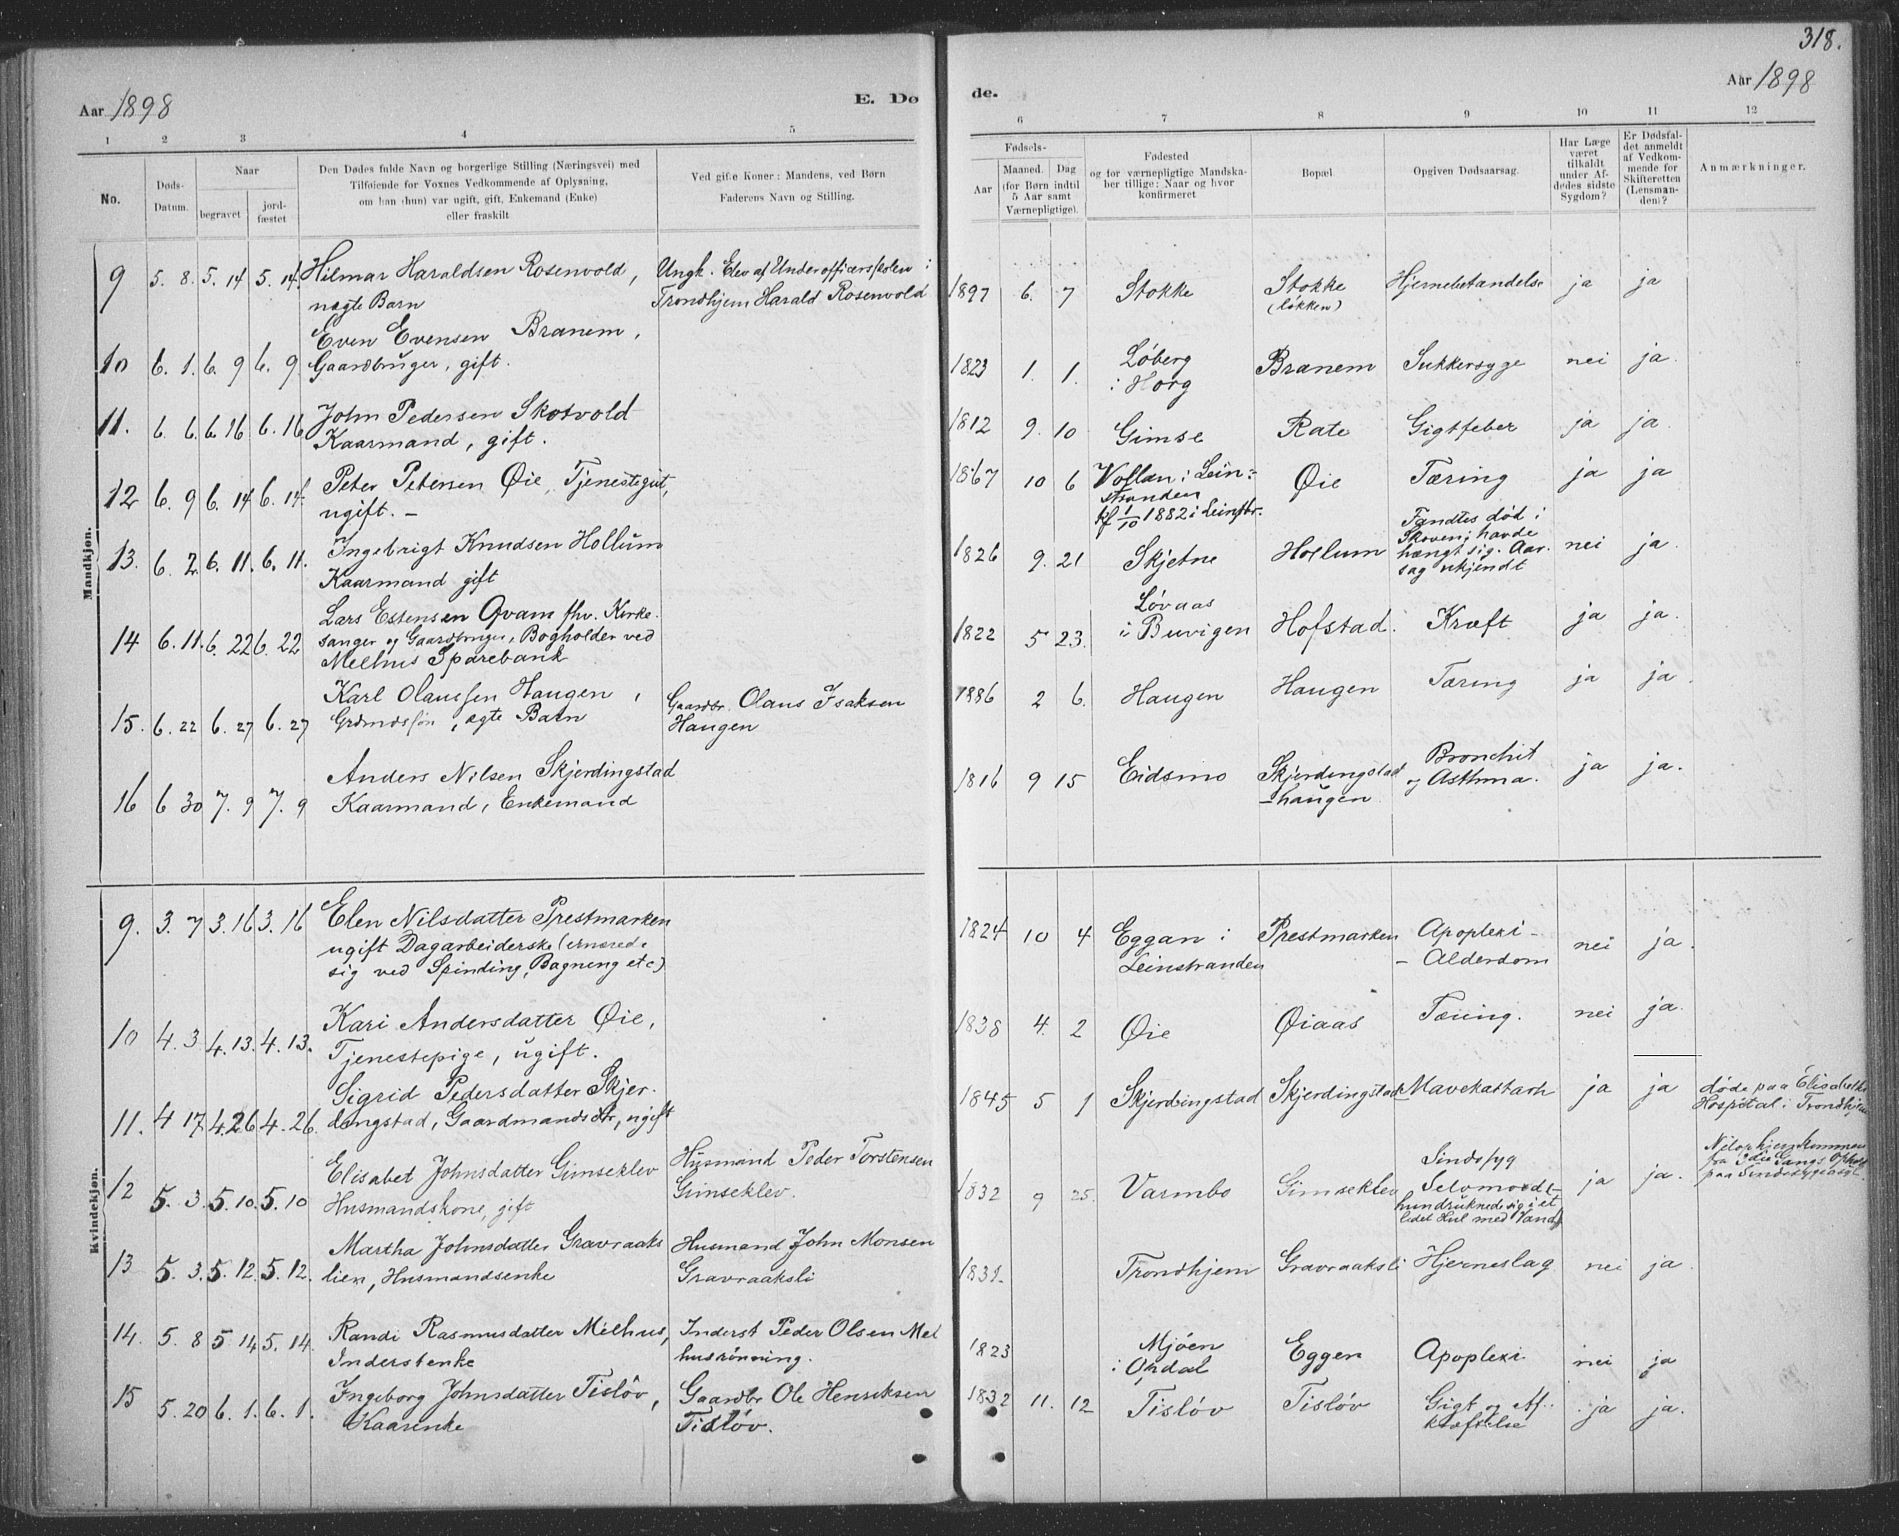 318.
Aar 1898
E. Dø
de.
Aar 1898
1 2 3 4 5
6 7 8 9 10 11 12
No.
Døds-
Datum.
Naar
begravet
jord-
fæstet
Den Dødes fulde Navn og borgerlige Stilling (Næringsvei) med
Tilføiende for Voxnes Vedkommende af Oplysning,
om han (hun) var ugift, gift, Enkemand (Enke)
eller fraskilt
Ved gifte Koner: Mandens, ved Børn
Faderens Navn og Stilling.
Fødsels-
Aar
Maaned. Dag
(for Børn indtil
5 Aar samt
Værnepligtige).
Fødested
og for værnepligtige Mandska-
ber tillige: Naar og hvor
konfirmeret
Bopæl.
Opgiven Dødsaarsag.
Har Læge
været
tilkaldt
under Af-
dødes sidste
Sygdom?
Er Dødsfal-
det anmeldt
af Vedkom-
mende for
Skifteretten
(Lensman-
den)?
Anmærkninger.
Mandkjøn.
9 5. 8. 5. 14 5. 14. Hilmar Haraldsen Rosenvold,
nægte Barn
Ungk. Elev af Underofficersskolen i
Trondhjem Harald Rosenvold
1897 6. 7 Stokke Stokke
(løkken)
Hjernebetændelse ja ja
10 6. 1. 6. 9 6. 9 Even Evensen Branem,
Gaardbruger, gift.
1823 1. 1. Løberg
i Horg
Branem Sukkersyge nei ja.
11. 6. 6. 6. 16 6. 16 John Pedersen Skotvold
Kaarmand, gift.
1812 9. 10 Gimse Rate Gigtfeber ja ja.
12 6. 9 6. 14 6. 14. Peter Petersen Øie, Tjenestegut,
ugift. –
1867 10 6 Vollan i Lein-
stranden
kf 1/10 1882 i Leinstr.
Øie Tæring ja ja
13. 6. 2. 6. 11. 6. 11. Ingebrigt Knudsen Hollum
Kaarmand gift
1826 9. 21 Skjetne Hollum Fandtes død i
Skoven; havde
hængt sig. Aar-
sag ukjendt
nei ja.
14 6. 11. 6. 22 6. 22 Lars Estensen Qvam fhv. Kirke-
sanger og Gaardbruger, Bogholder ved
Melhus Sparebank
1822 5 23. Løvaas
i Buvigen
Hofstad. Kræft ja ja.
15. 6. 22 6. 27 6. 27 Karl Olaussen Haugen,
Grdmdssøn, ægte Barn
Gaardbr. Olaus Isaksen
Haugen
1886 2 6. Haugen Haugen Tæring ja ja.
16 6 30 7. 9 7. 9 Anders Nilsen Skjerdingstad
Kaarmand, Enkemand
1816 9 15 Eidsmo Skjerdingstad
-haugen
Bronchit
og Asthma.
ja ja.
Kvindekjøn.
9. 3. 7 3. 16 3. 16 Elen Nilsdatter Prestmarken
ugift Dagarbeiderske (ernærede
sig ved Spinding, Bagning etc)
1824 10 4 Eggan i
Leinstranden
Prestmarken Apoplexi –
– Alderdom
nei ja.
10 4. 3 4. 13. 4. 13. Kari Andersdatter Øie,
Tjenestepige, ugift.
1838 4. 2 Øie Øiaas Tæring. nei ja.
11. 4 17 4. 26 4. 26. Sigrid Pedersdatter Skjer-
dingstad, Gaardmandsdtr, ugift
1845 5 1 Skjerdingstad Skjerdingstad Mavekattarh ja ja døde paa Elisabeths
Hospital i Trondhjem
12 5. 3. 5. 10. 5. 10 Elisabet Johnsdatter Gimseklev
Husmandskone, gift
Husmand Peder Torstensen
Gimseklev.
1832 9 25. Varmbo Gimseklev Sindssyg
Selvmord-
hun druknede sig i et
lidet Hul med Vand
ja ja. Nylig hjemkommen
fra 3die Gangs Ophold
paa Sindssygeasyl.
13 5. 3. 5. 12. 5. 12. Martha Johnsdatter Gravraaks
lien, Husmandsenke
Husmand John Monsen
Gravraaksli
1831. Trondhjem Gravraaksli Hjerneslag nei ja.
14. 5. 8 5 14 5. 14. Randi Rasmusdatter Melhus,
Inderstenke
Inderst Peder Olsen Mel
husrønning.
1823 Mjøen
i Opdal
Eggen Apoplexi nei ja
15 5. 20 6. 1. 6. 1. Ingeborg Johnsdatter Tisløv,
Kaarenke
Gaardbr Ole Henriksen
Tisløv.
1832 11. 12 Tisløv Tisløv Gigt og Af-
kræftelse
ja ja.